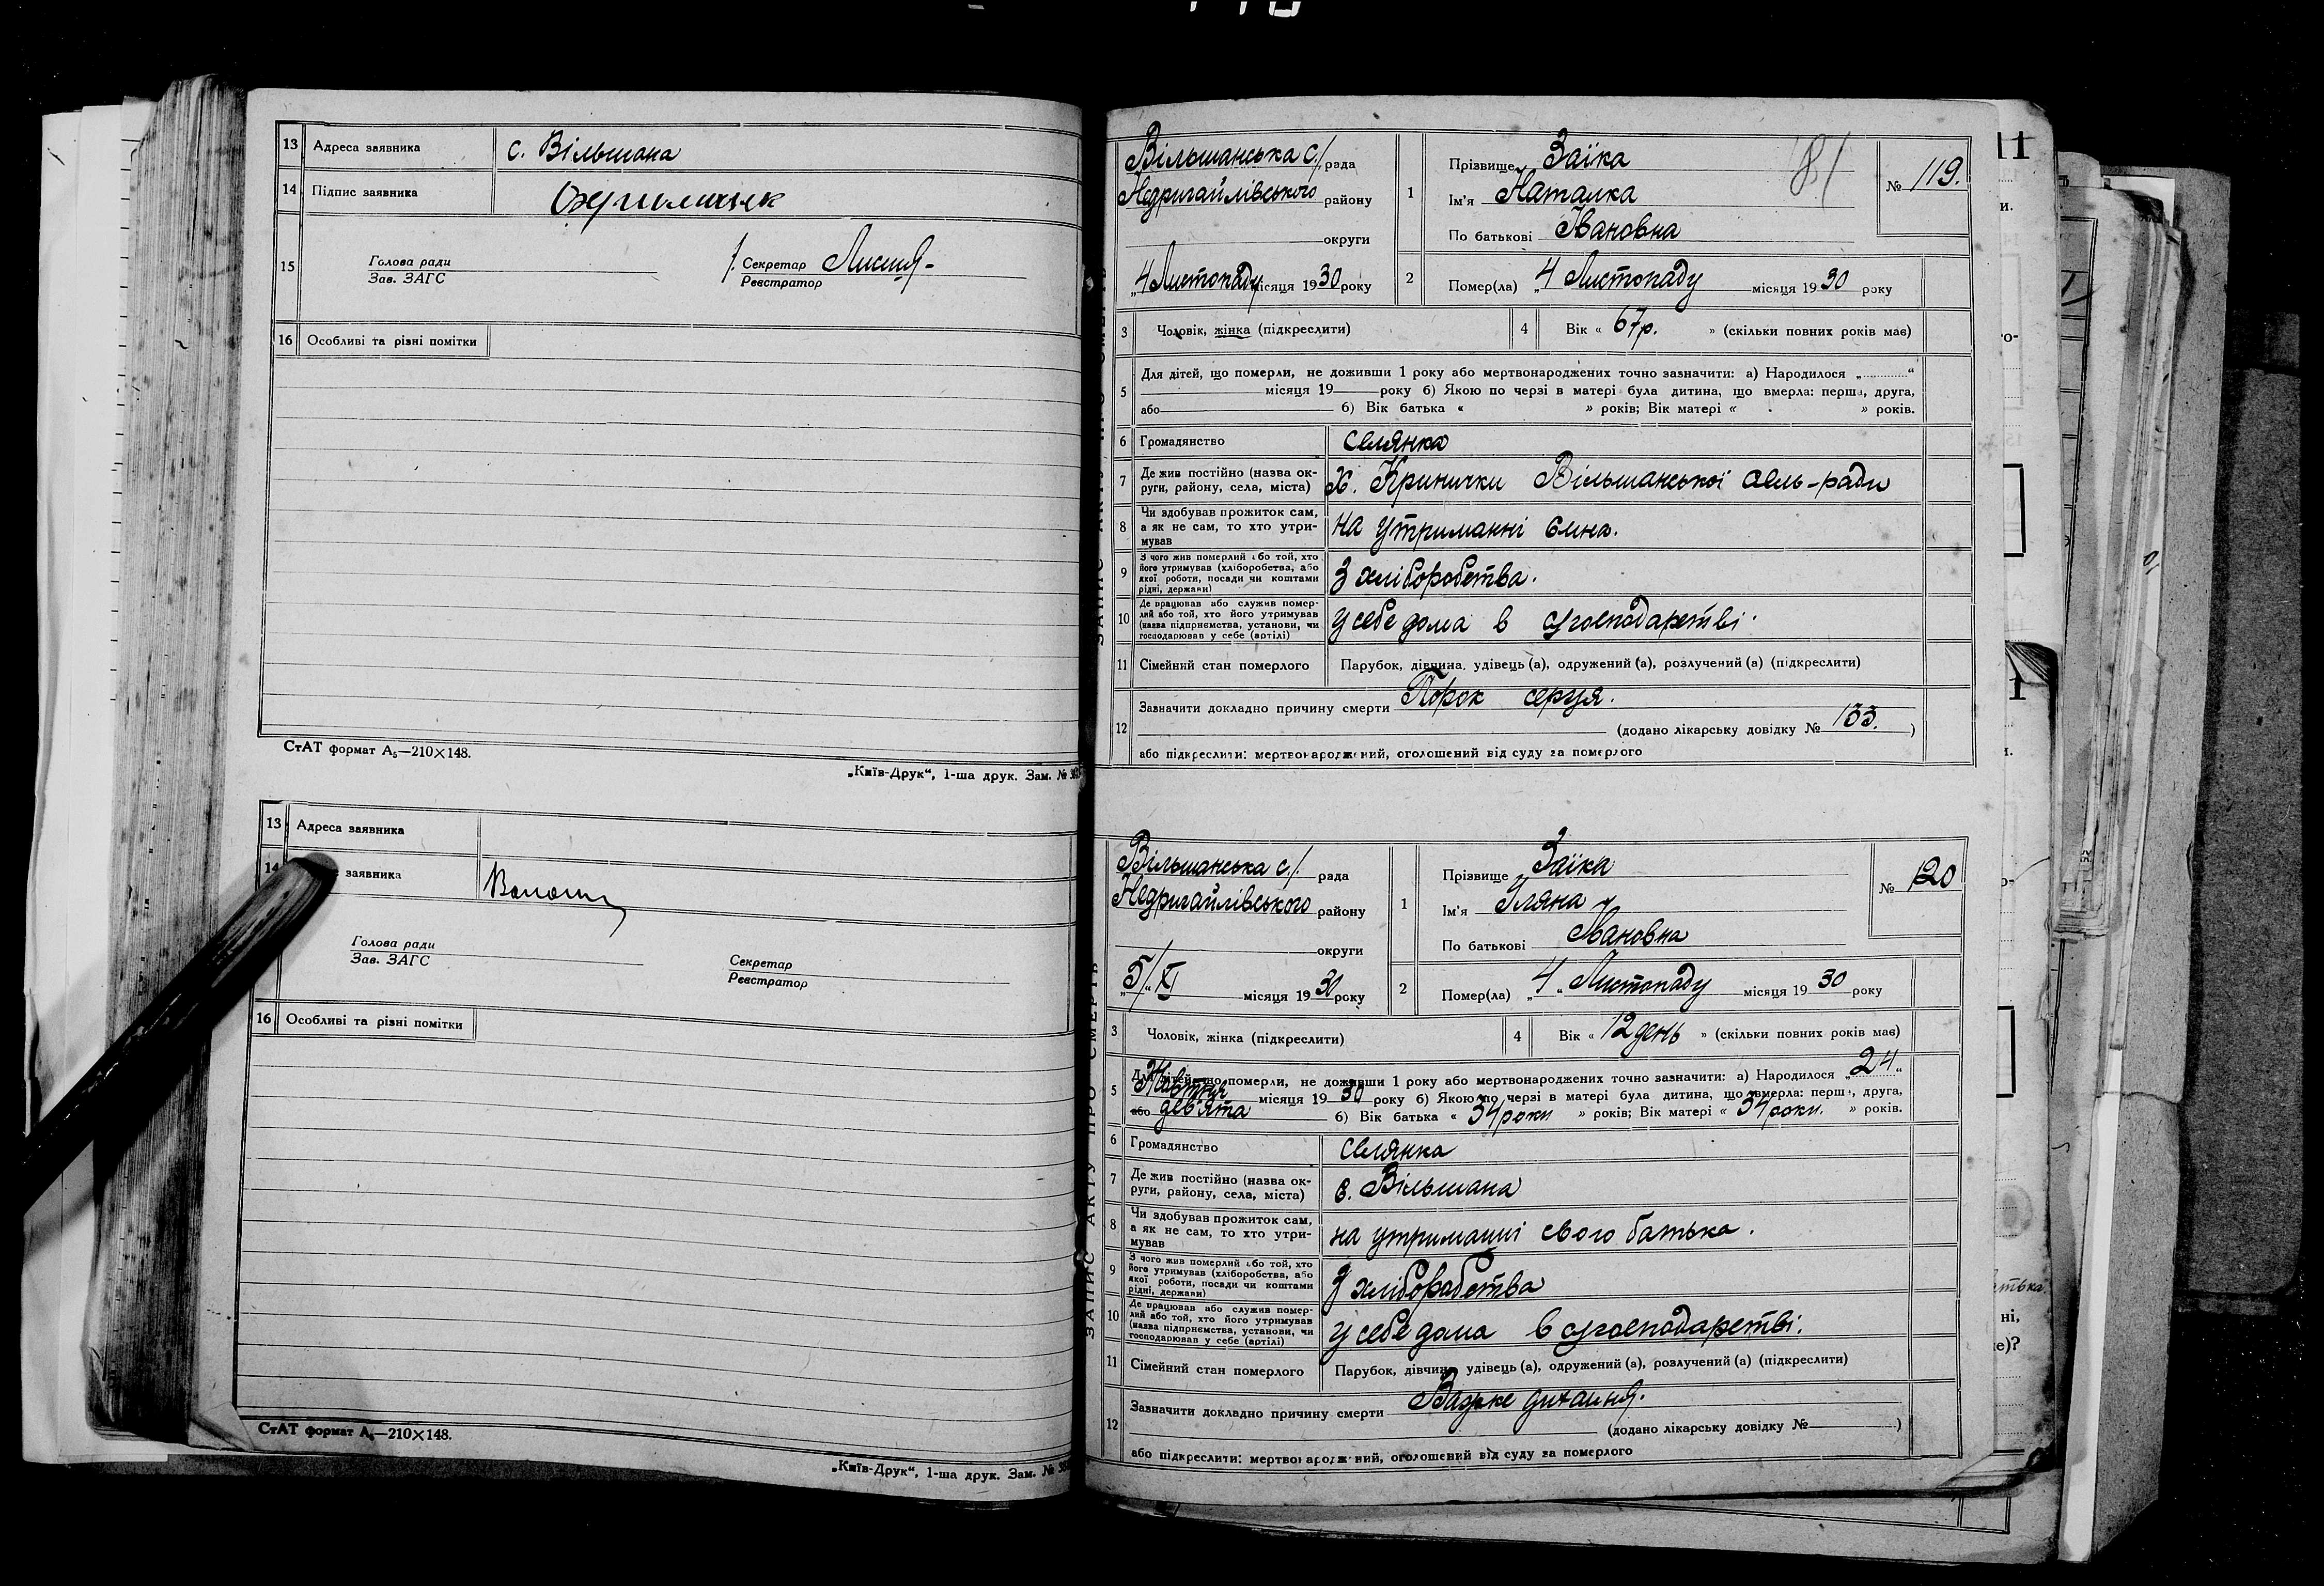 13 Адреса заявника с. Вільшана
14 Підпис заявника
15 Голова ради
Зав. ЗАГС
Секретар
Реєстратор
16 Особливі та різні помітки
СтАТ формат А₅—210×148.
„Київ-Друк“, 1-ша друк. Зам. №
13 Адреса заявника
14 заявника
Голова ради
Зав. ЗАГС
Секретар
Реєстратор
16 Особливі та різні помітки
СтАТ формат А₅—210×148.
„Київ-Друк“, 1-ша друк. Зам. №
Вільшанська с/рада
Недригайлівського району
округи
„4 Листопаду місяця 1930 року
1 Прізвище Заїка
Ім'я Наталка
По батькові Івановна
№ 119.
81
2 Помер(ла) „4 Листопаду місяця 1930 року
3 Чоловік, жінка (підкреслити)
4 Вік « 67р. » (скільки повних років має)
5 Для дітей, що померли, не доживши 1 року або мертвонароджених точно зазначити: а) Народилося „ “
місяця 19 року б) Якою по черзі в матері була дитина, що вмерла: перша, друга,
або б) Вік батька « » років; Вік матері « » років.
6 Громадянство селянка
7 Де жив постійно (назва ок-
руги, району, села, міста) х. Кринички Вільшанської сель-ради
8 Чи здобував прожиток сам,
а як не сам, то хто утри-
мував на утриманні сина.
9 З чого жив померлий або той, хто
його утримував (хліборобства, або
якої роботи, посади чи коштами
рідні, держави) З хліборобства.
10 Де працював або служив помер-
лий або той, хто його утримував
(назва підприємства, установи, чи
господарював у себе (артілі) у себе дома в сгосподарстві.
11 Сімейний стан померлого Парубок, дівчина, удівець (а), одружений (а), розлучений (а) (підкреслити)
12 Зазначити докладно причину смерти Порок серця.
(додано лікарську довідку № 133. )
або підкреслити: мертвонароджений, оголошений від суду за померлого
Вільшанська с/ рада
Недригайлівського району
округи
„5/“ XI місяця 1930 року
1 Прізвище Заїка
Ім'я Уляна
По батькові Івановна
№ 120
2 Помер(ла) „4“ Листопаду місяця 1930 року
3 Чоловік, жінка (підкреслити)
4 Вік « 12 день » (скільки повних років має)
5 Для дітей, що померли, не доживши 1 року або мертвонароджених точно зазначити: а) Народилося „24“
Жовтня місяця 1930 року б) Якою по черзі в матері була дитина, що вмерла: перша, друга,
або дев'ята б) Вік батька « 34 роки » років; Вік матері « 34 роки. » років.
6 Громадянство селянка
7 Де жив постійно (назва ок-
руги, району, села, міста) с. Вільшана
8 Чи здобував прожиток сам,
а як не сам, то хто утри-
мував на утриманні свого батька.
9 З чого жив померлий або той, хто
його утримував (хліборобства, або
якої роботи, посади чи коштами
рідні, держави) З хліборобства
10 Де працював або служив помер-
лий або той, хто його утримував
(назва підприємства, установи, чи
господарював у себе (артілі) у себе дома в сгосподарстві.
11 Сімейний стан померлого Парубок, дівчина, удівець (а), одружений (а), розлучений (а) (підкреслити)
12 Зазначити докладно причину смерти Важке дихання.
(додано лікарську довідку № )
або підкреслити: мертвонароджений, оголошений від суду за померлого